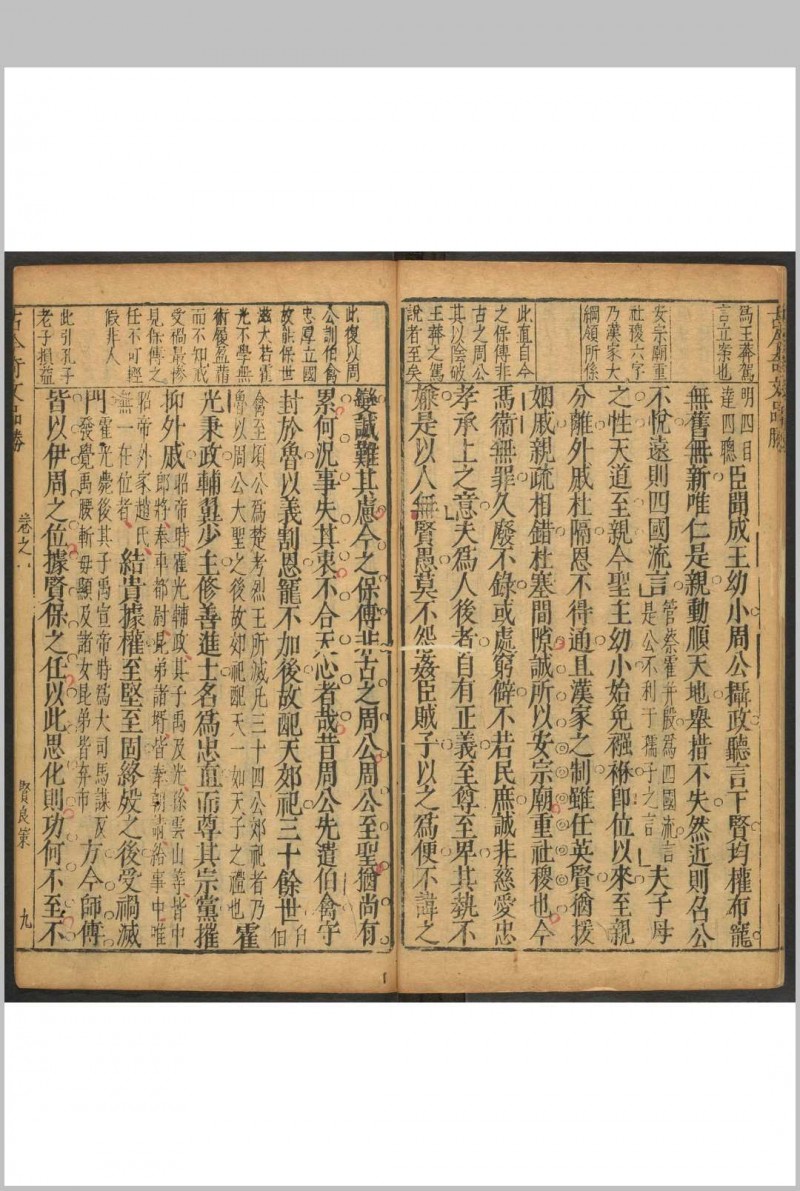 爲王莽駕
言立案也
安宗廟重
社稷六字
乃漢家大
綱領所係
此直自今
之保傅非
古之周公
其以陰破
王莽之駕
說者至矣
明四目
達四聰
臣聞成王幼小周公攝政聽言下賢均權布寵
無舊無新唯仁是親動順天地舉措不失然近則召公
不悅遠則四國流言
管蔡霍并殷爲四國流言
是公不利于孺子之言
夫子母
之性天道至親今聖主幼小始免襁褓卽位以來至親
分離外戚杜隔恩不得通且漢家之制雖任英賢猶援
姻戚親疏相錯杜塞間隙誠所以安宗廟重社稷也今
馮衞無罪久廢不錄或處窮僻不若民庶誠非慈愛忠
孝承上之意夫爲人後者自有正義至尊至卑其埶不
嫌是以人無賢愚莫不怨姦臣賊子以之爲便不諱之
此復以周
公訓伯禽
忠厚立國
故能保世
滋大若霍
光不學無
術履盈藉
而不知戒
受禍最慘
見保傅之
任不可輕
假非人
此引孔子
老子損益
變誠難其慮今之保傅非古之周公周公至聖猶尚有
累何況事失其衷不合天心者哉昔周公先遣伯禽守
封於魯以義割恩寵不加後故配天郊祀三十餘世
自
伯
禽至頃公爲楚考烈王所滅凡三十四公郊祀者乃
魯以周公大聖之後故郊祀配天一如天子之禮也
霍
光秉政輔翼少主修善進士名爲忠直而尊其宗黨摧
抑外戚
昭帝時霍光輔政其子禹及光孫雲山等皆中
郎將奉車都尉昆弟諸壻皆奉朝請給事中唯
昭帝外家趙氏
無一在位者
結貴據權至堅至固終歿之後受禍滅
門
霍光薨後其子禹宣帝時爲大司馬謀反
發覺禹腰斬毋顯及諸女昆弟皆弃市
方今師傅
皆以伊周之位據賢保之任以此思化則功何不至不
古今奇文品勝
卷之
賢良策
九